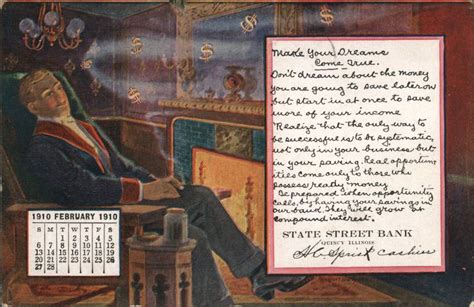 Make Your Dreams
Come True.
Don't dream about the money
you are going to save later on
but start in at once to save
more of your income
Realize that the only way to
be successful is to be systematic,
not only in your business but
in your saving. Real opportuni-
ties come only to those who
possess ready money.
Be prepared when opportunity
calls, by having your savings in
our bank. They will grow at
compound interest.
STATE STREET BANK
QUINCY ILLINOIS
Cashier
1910 FEBRUARY 1910
S M T W T F S
1 2 3 4 5
6 7 8 9 10 11 12
13 14 15 16 17 18 19
20 21 22 23 24 25 26
27 28
$ $ $ $ $ $